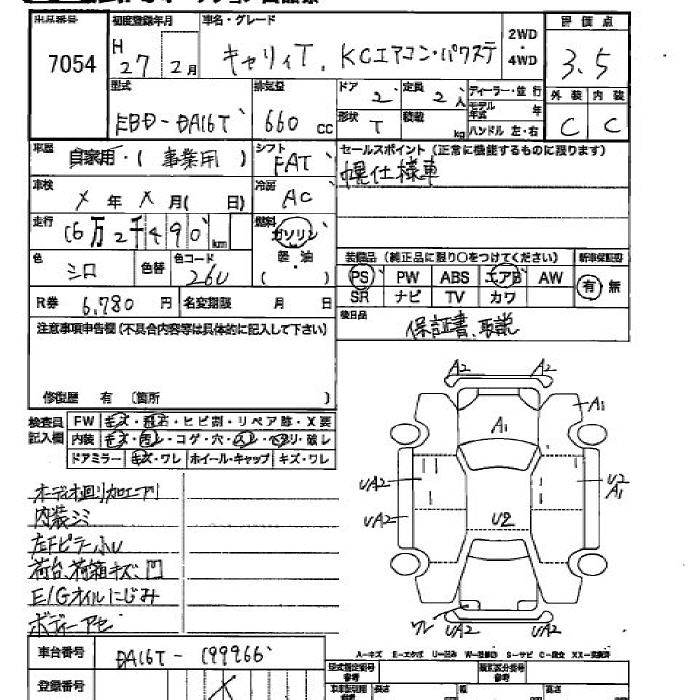 出品番号 7054
初度登録年月 H 27 2月
車名・グレード キャリィT. KCエアコン・パワステ
2WD
4WD
評価点 3.5
外装 C 内装 C
型式 EBD-DA16T
排気量 660 cc
ドア 2 定員 2人
形状 T 積載 kg
ディーラー・並行
モデル年式 年
ハンドル 左・右
車歴 自家用・(事業用)
シフト FAT
セールスポイント(正常に機能するものに限ります)
幌仕様車
車検 X年X月( 日)
冷房 AC
走行 16万2千490 km
燃料 ガソリン
軽油
( )
色 シロ 色替 色コード 26U
装備品(純正品に限り○をつけてください) 新車保証書
PS PW ABS エアB AW
SR ナビ TV カワ
有 無
R券 6,780円 名変期限 月 日
後日品 保証書、取説
注意事項申告欄(不具合内容等は具体的に記入して下さい)
修復歴 有 (箇所 )
検査員記入欄
FW キズ・飛石・ヒビ割・リペア跡・X要
内装 キズ・・コゲ・穴・・・破レ
ドアミラー キズ・ワレ ホイール・キャップ キズ・ワレ
オーディオ廻り加工アリ
内装シミ
左Fピラー小U
荷台、荷箱キズ、凹
E/Gオイルにじみ
ボディーアセ
A2 A2
A1
A1
UA2
U2
A1
UA2
U2
ワレ UA2 UA2
A-キズ E-エクボ U-凹み W-補修跡 S-サビ C-腐食 XX-交換済
車台番号 DA16T-199966
登録番号
型式指定番号 参考
類別区分番号 参考
長さ 幅 高さ